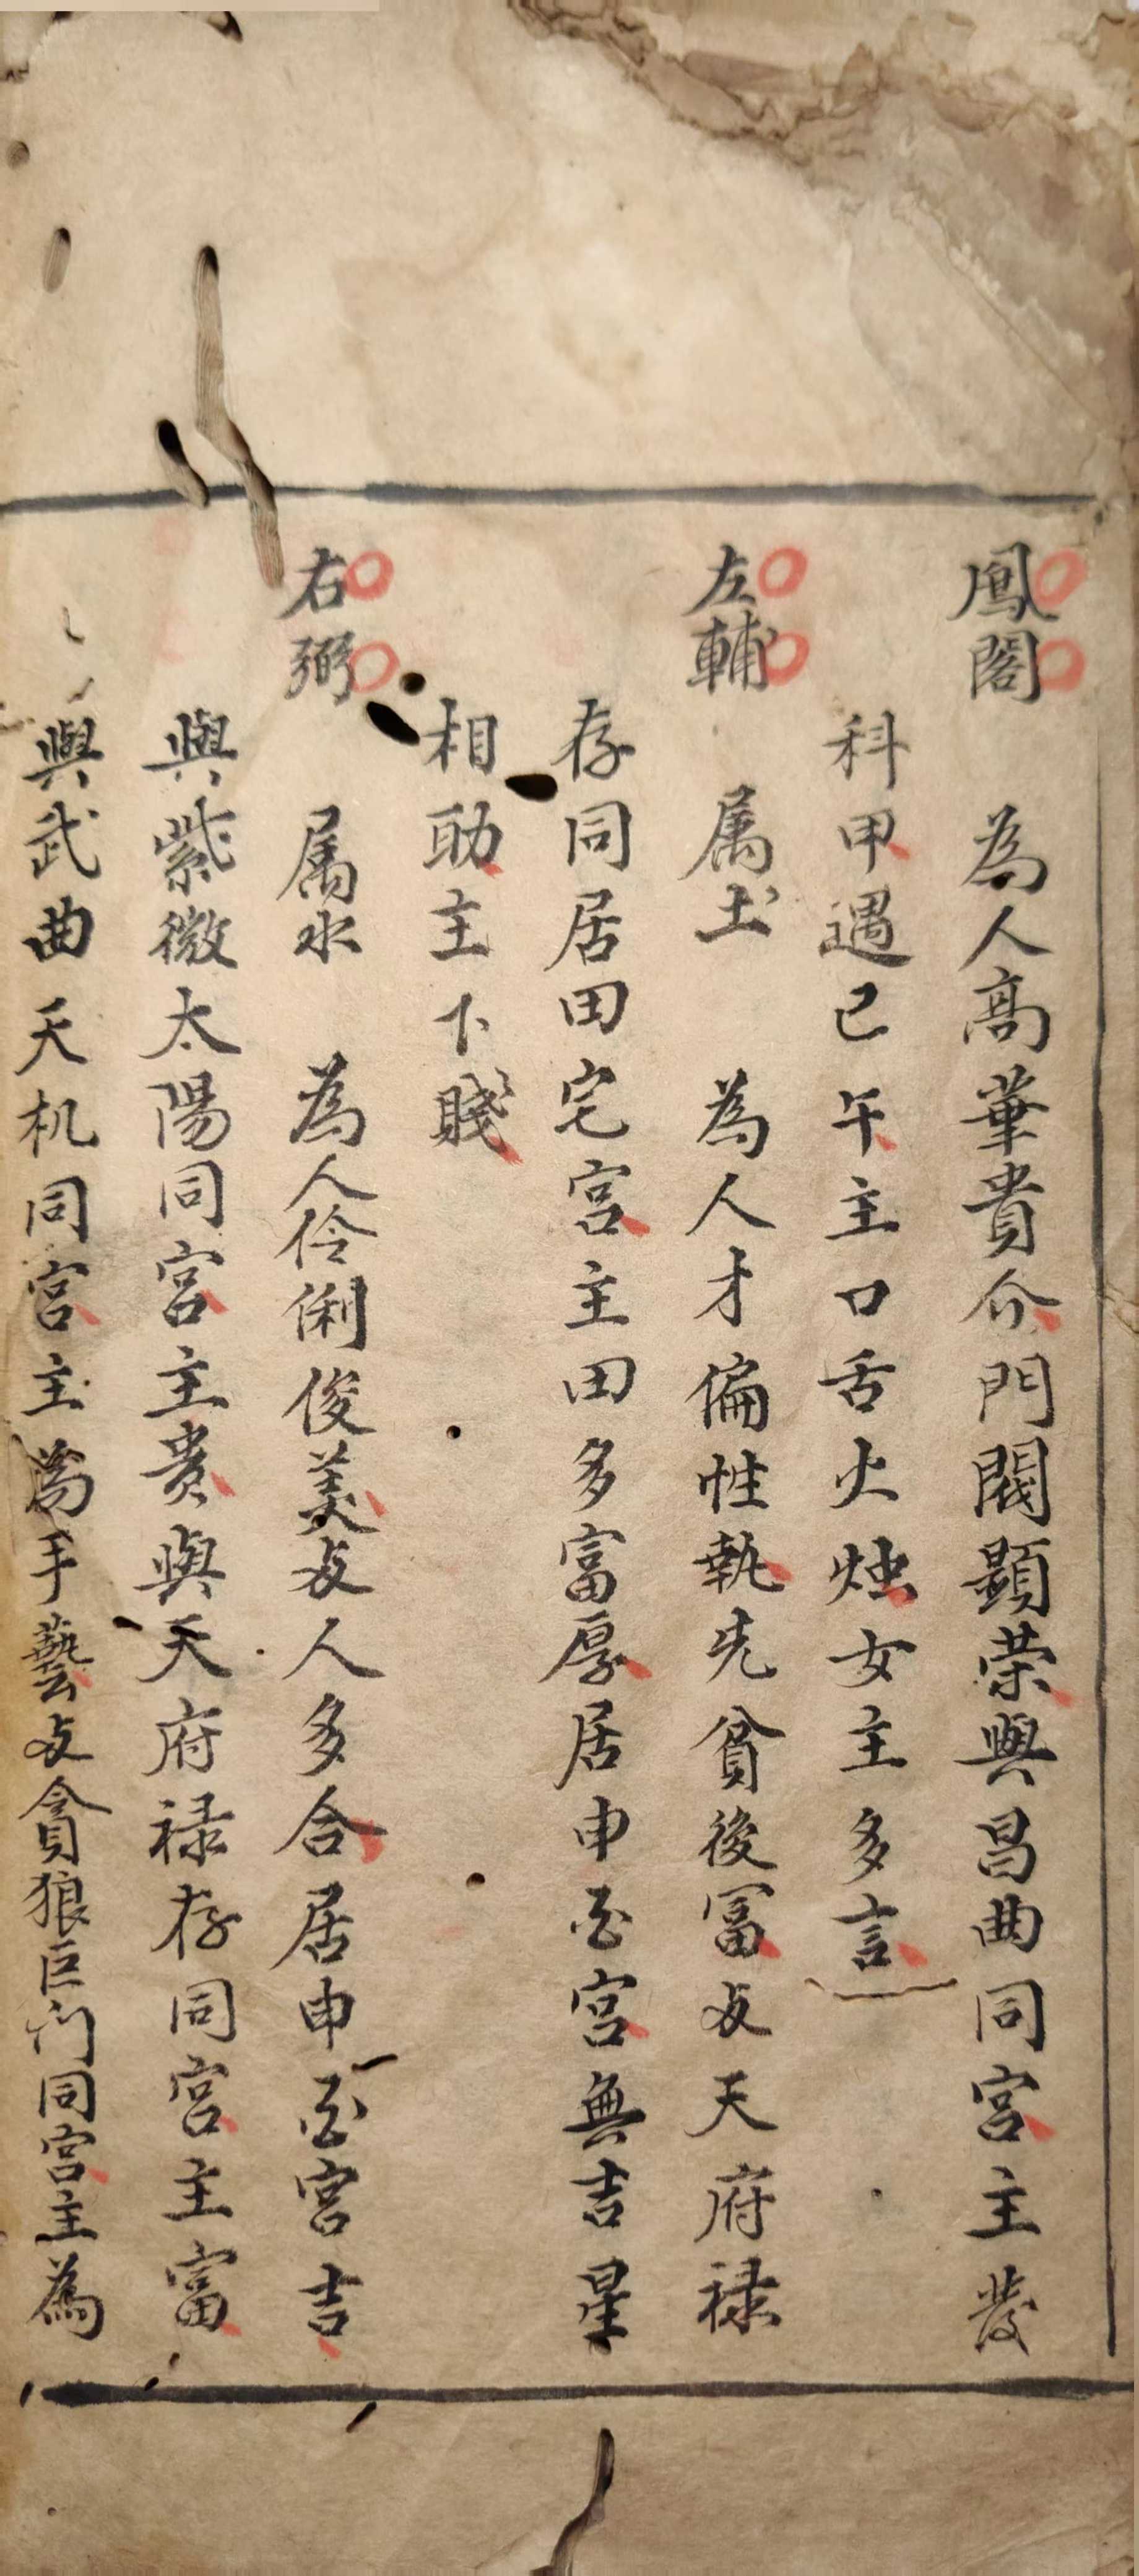 鳳閣 為人高華貴介門閥顯荣與昌曲同宮主發
科甲遇巳午主口舌火烛女主多言
左輔 属土 為人才偏性執先貧後冨友天府禄
存同居田宅宮主田多富厚居申酉宮無吉星
相助主下賤
右弼 属水 為人伶俐俊美友人多合居申酉宮吉
與紫微太陽同宮主贵與天府禄存同宮主富
與武曲天机同宮主為手藝友貪狼巨门同宮主為